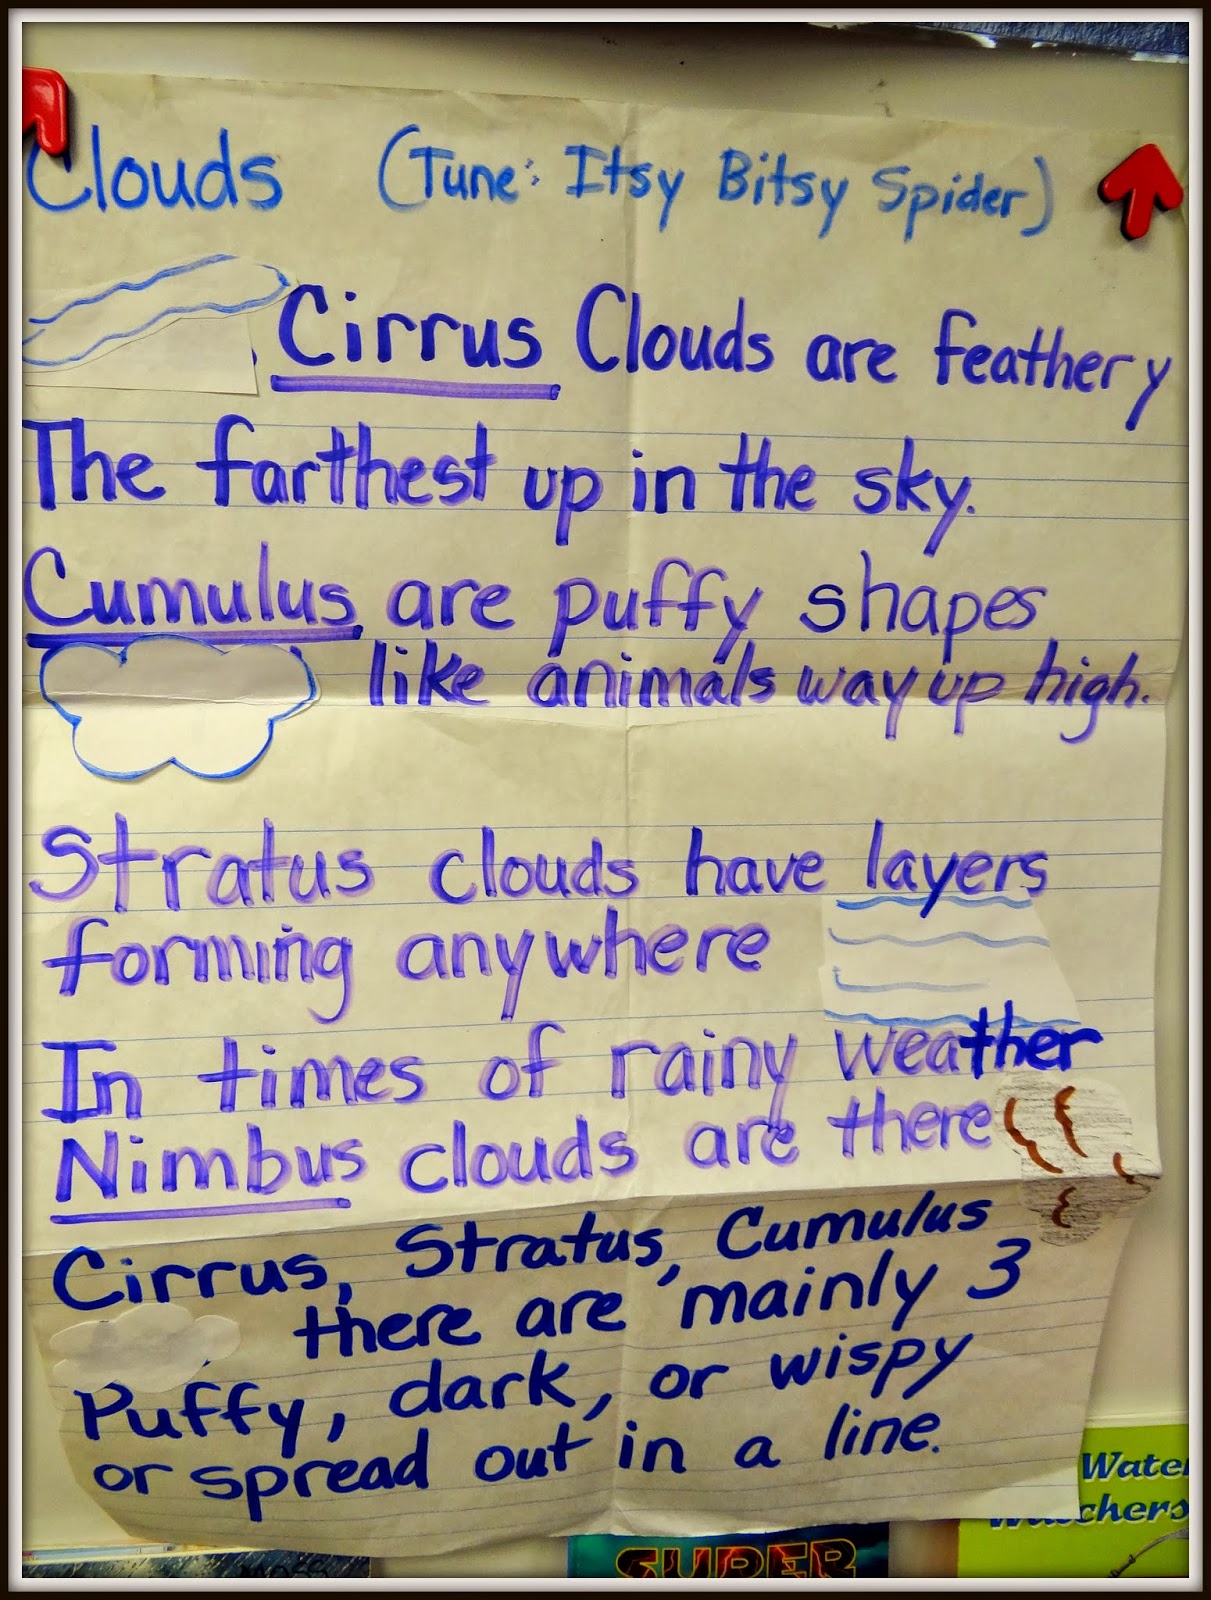 Clouds (Tune: Itsy Bitsy Spider)
Cirrus Clouds are feathery
The farthest up in the sky.
Cumulus are puffy shapes
like animals way up high.
Stratus clouds have layers
forming anywhere
In times of rainy weather
Nimbus clouds are there
Cirrus, Stratus, Cumulus
there are mainly 3
Puffy, dark, or wispy
or spread out in a line.
SUPER